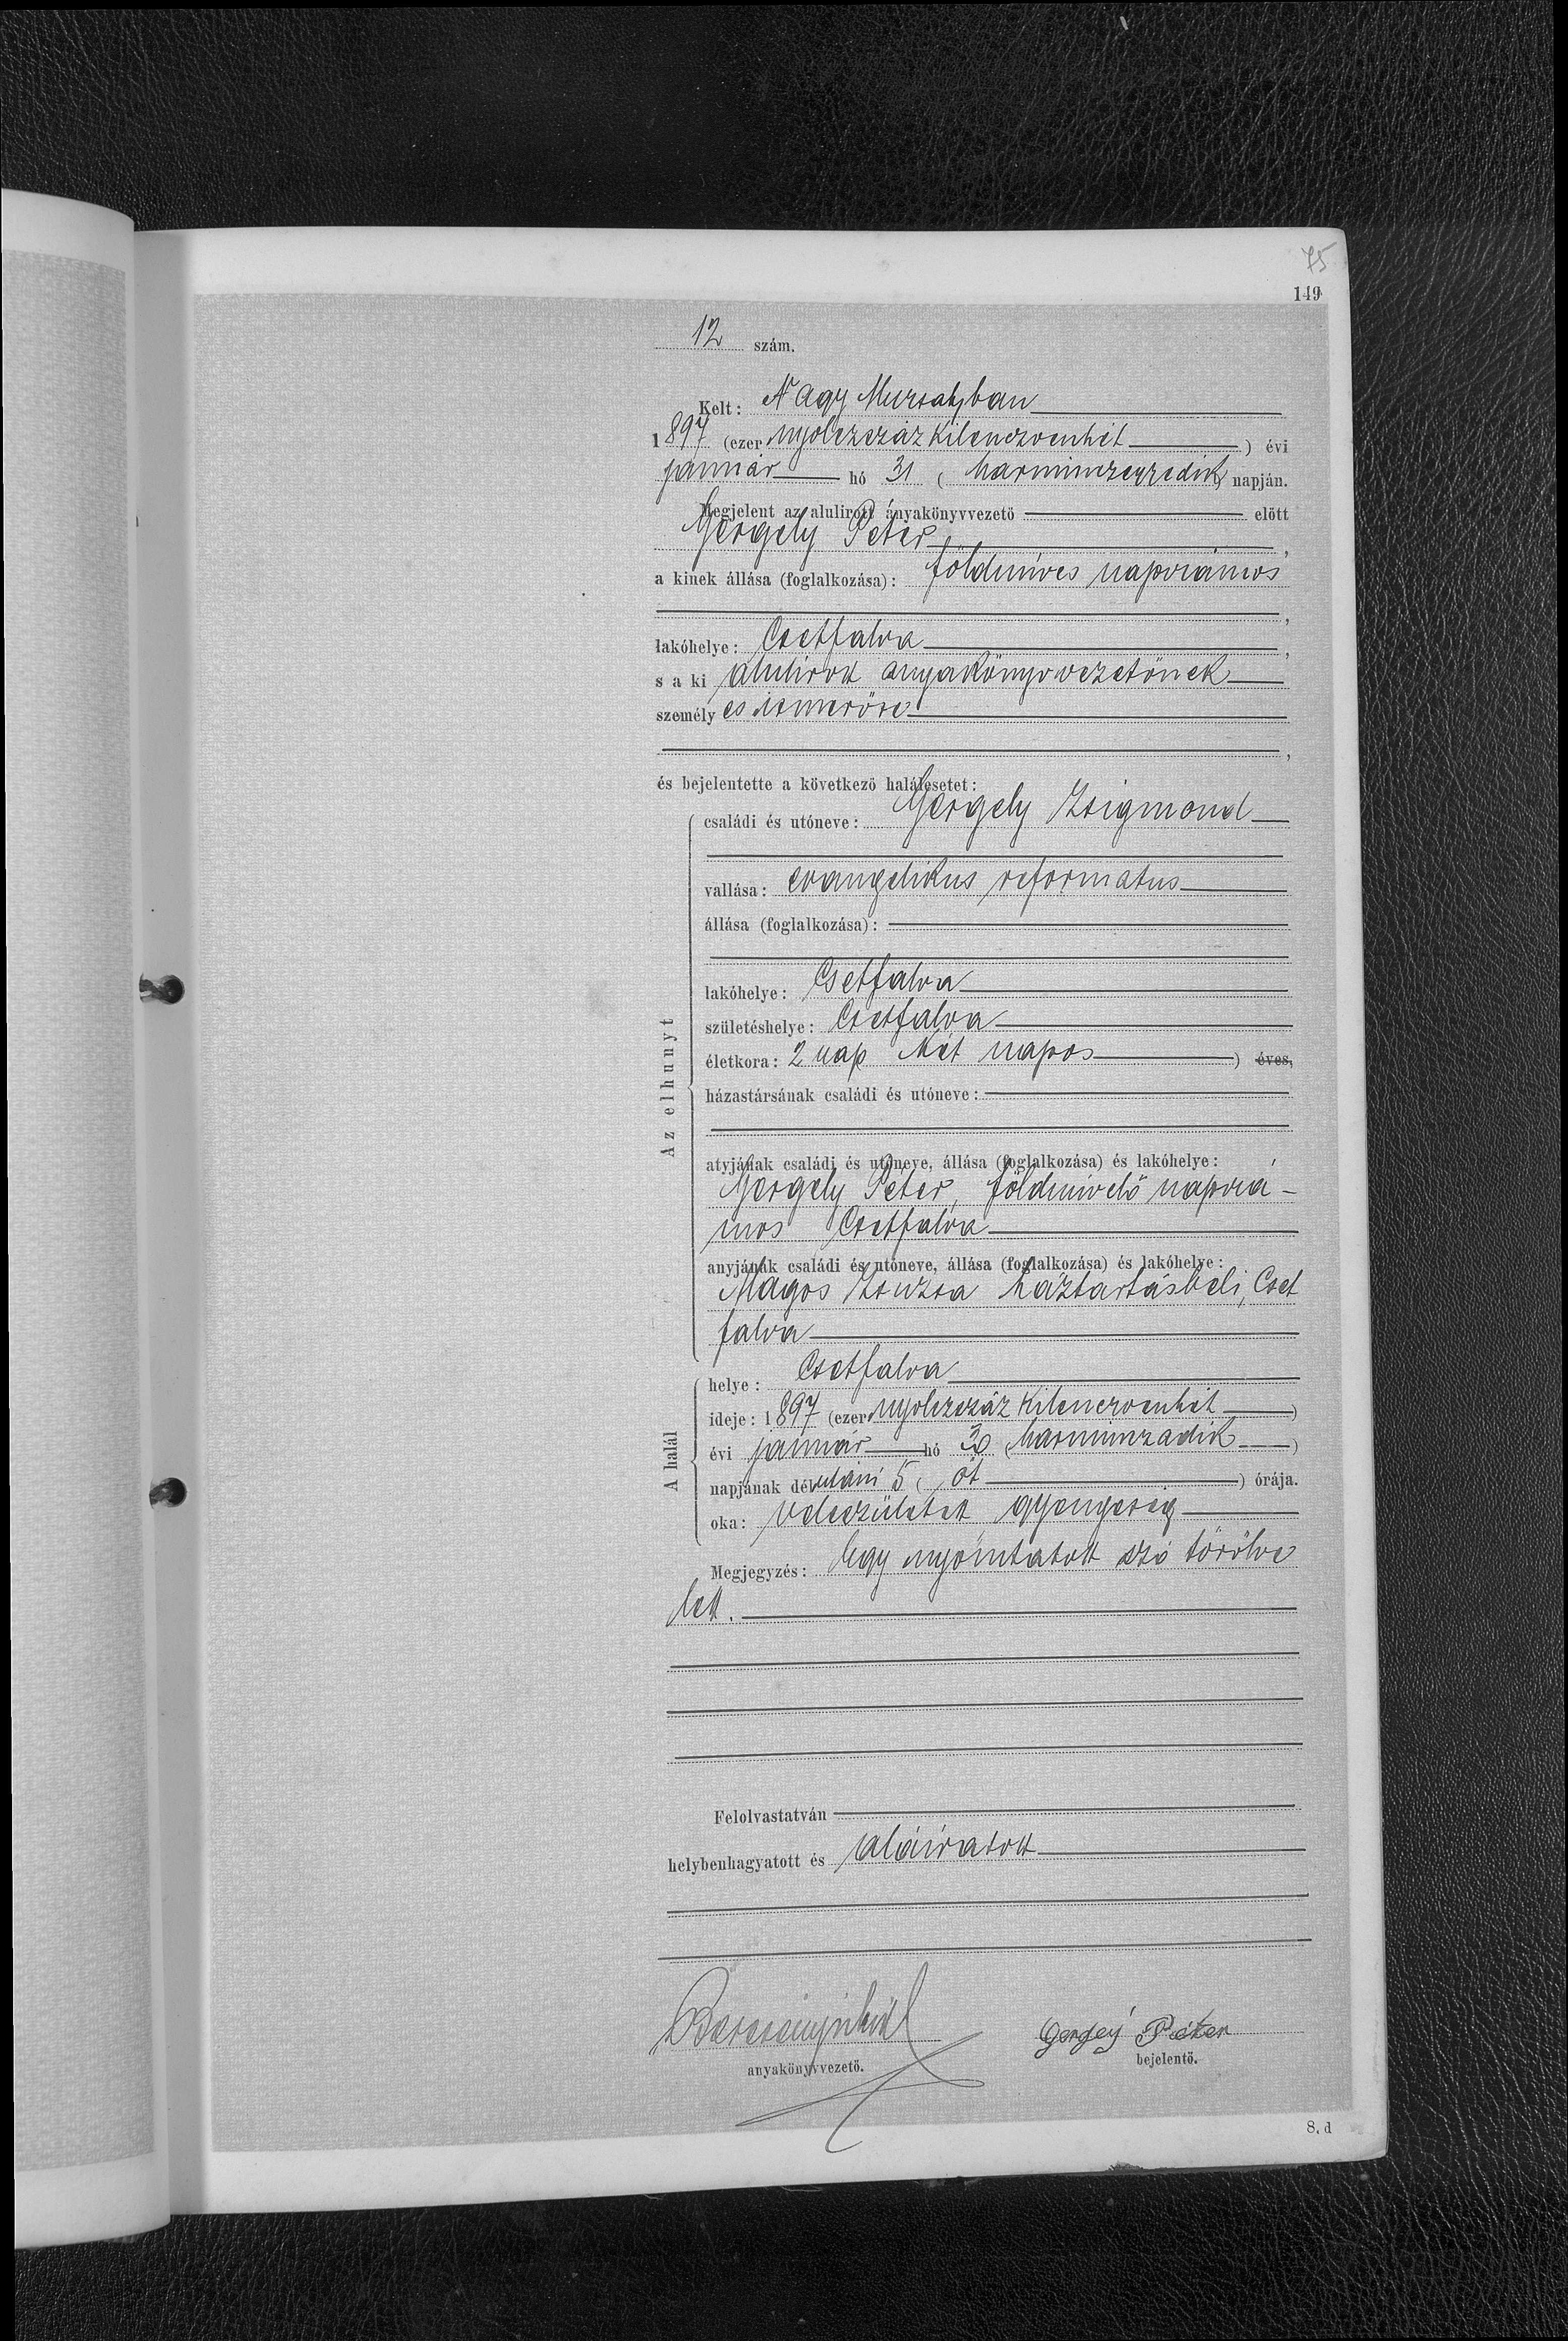 75
149
12 szám.
Kelt: Nagy Muzsalyban
1897 (ezer nyolczszáz kilenczvenhét) évi
január hó 31 (harminczegyedik) napján.
Megjelent az alulirott anyakönyvvezető előtt
Gergely Péter,
a kinek állása (foglalkozása): földmíves napszámos
,
lakóhelye: Csetfalva,
s a ki alulirott anyakönyvvezetőnek
személyes ismerőse
,
és bejelentette a következő halálesetet:
családi és utóneve: Gergely Zsigmond
vallása: evangelikus reformatus
állása (foglalkozása):
lakóhelye: Csetfalva
születéshelye: Csetfalva
életkora: 2 nap két napos) éves,
házastársának családi és utóneve:
Az elhunyt
atyjának családi és utóneve, állása (foglalkozása) és lakóhelye:
Gergely Péter, földmívelő napszá-
mos Csetfalva
anyjának családi és utóneve, állása (foglalkozása) és lakóhelye:
Magos Zsuzsa háztartásbeli, Cset
falva
helye: Csetfalva
ideje: 1897 (ezer nyolczszáz kilenczvenhét)
évi január hó 30 (harminczadik)
A halál
napjának délutáni 5 (öt) órája.
oka: veleszületett gyengeség
Megjegyzés: Egy nyomtatott szó törölve
lett.
Felolvastatván
helybenhagyatott és aláiratott
Gergej Péter
anyakönyvvezető. bejelentő.
8. d